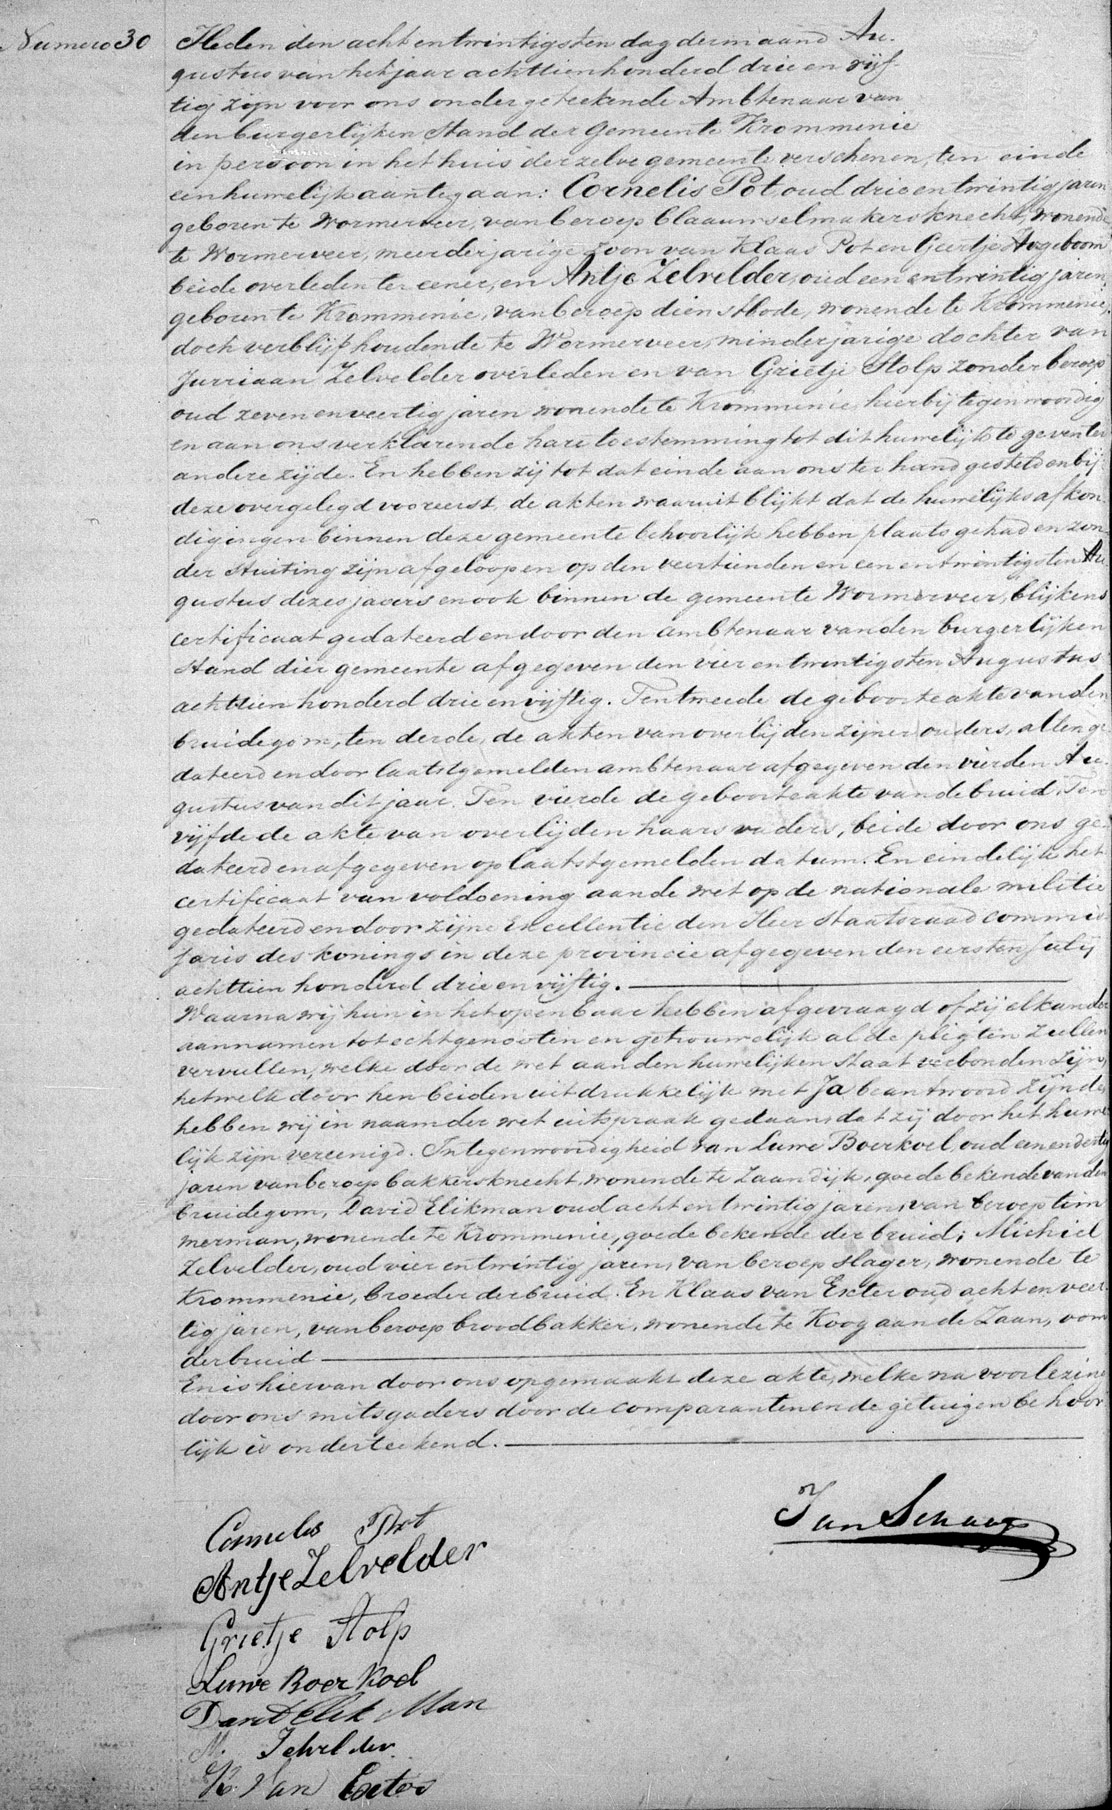 Numero 30
Heden den achtentwintigsten dag der maand Au-
gustus van het jaar achttienhonderd drie en vijf-
tig zijn voor ons ondergeteekende Ambtenaar van
den burgerlijken Stand der Gemeente Krommenie
in persoon in het huis derzelve gemeente verschenen, ten einde
een huwelijk aantegaan: Cornelis Pot, oud drie en twintig jaren
geboren te Wormerveer, van beroep blaauwselmakersknecht, wonende
te Wormerveer, meerderjarige zoon van Klaas Pot en Geertje
beide overleden ter eener, en Antje Zelvelder, oud een en twintig jaren,
geboren te Krommenie, van beroep dienstbode, wonende te Krommenie,
doch verblijf houdende te Wormerveer, minderjarige dochter van
Jurriaan Zelvelder overleden en van Grietje Stolp zonder beroep
oud zeven en veertig jaren wonende te Krommenie, hierbij tegenwoordig
en aan ons verklarende hare toestemming tot dit huwelijk te geven ter
andere zijde. En hebben zij tot dat einde aan ons ter hand gesteld en bij
deze overgelegd vooreerst, de akten waaruit blijkt dat de huwelijks afkon
digingen binnen deze gemeente behoorlijk hebben plaats gehad en zon
der stuiting zijn afgeloopen op den veertienden en een en twintigsten Au
gustus dezes jaars en ook binnen de gemeente Wormerveer, blijkens
certificaat gedateerd en door den ambtenaar van den burgerlijken
Stand dier gemeente afgegeven den vier en twintigsten Augustus
achttien honderd drie en vijftig. Ten tweede de geboorteakte van den
bruidegom, ten derde, de akten van overlijden zijner ouders, allen ge
dateerd en door laatstgemelden ambtenaar afgegeven den vierden Au-
gustus van dit jaar. Ten vierde de geboorteakte van de bruid. Ten
vijfde de akte van overlijden haars vaders, beide door ons ge-
dateerd en afgegeven op laatstgemelden datum. En eindelijk het
certificaat van voldoening aan de wet op de nationale militie
gedateerd en door zijne Excellentie den Heer Staatsraad commis
saris des konings in deze provincie afgegeven den eersten Julij
achttien honderd drie en vijftig.
Waarna wij hun in het openbaar hebben afgevraagd of zij elkander
aannamen tot echtgenooten en getrouwelijk al de pligten zullen
vervullen, welke door de wet aan den huwelijken staat verbonden zijn,
hetwelk door hen beiden uitdrukkelijk met Ja beantwoord zijnde,
hebben wij in naam der wet uitspraak gedaan, dat zij door het huwe
lijk zijn vereenigd. In tegenwoordigheid van Luwe Boerkoel, oud een en dertig
jaren van beroep bakkersknecht, wonende te Zaandijk, goede bekende van den
bruidegom, David Elikman oud acht en twintig jaren, van beroep tim
merman, wonende te Krommenie, goede bekende der bruid; Michiel
Zelvelder, oud vier en twintig jaren, van beroep slager, wonende te
Krommenie, broeder der bruid. En Klaas van Exter oud acht en veer
tig jaren, van beroep broodbakker, wonende te Koog aan de Zaan, oom
der bruid
En is hiervan door ons opgemaakt deze akte, welke na voorlezing
door ons mitsgaders door de comparanten en de getuigen behoor
lijk is onderteekend.
Jan Schaap
Cornelis Pot
Antje Zelvelder
Grietje Stolp
Luwe Boerkoel
David Elik Man
M. Zelvelder
K. van Exter